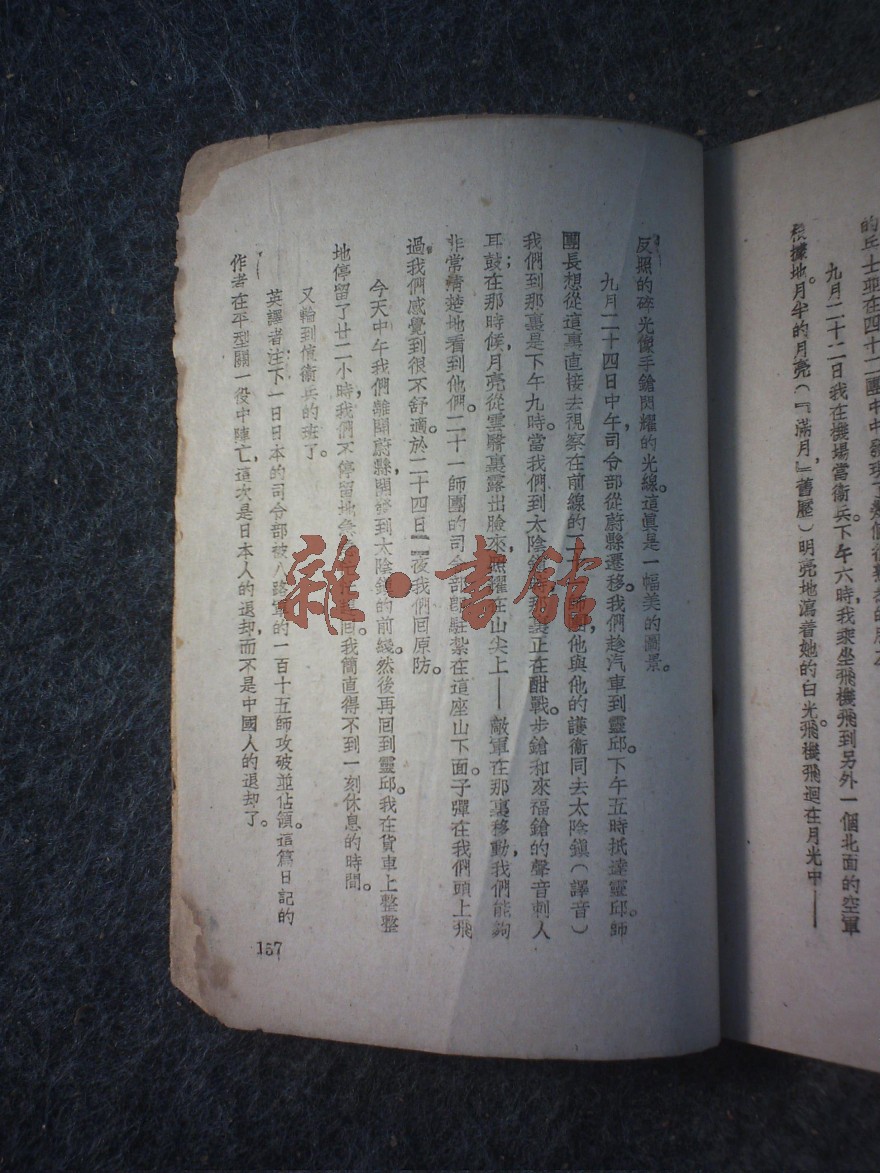 九月二十二日我在機場當衞兵。下午六時,我乘坐飛機飛到另外一個北面的空軍
根據地。月半的月亮(『滿月』舊曆)明亮地瀉着她的白光。飛機飛迴在月光中——
反照的碎光像手鎗閃耀的光線。這眞是一幅美的圖景。
九月二十四日中午司令部從蔚縣遷移。我們趁汽車到靈邱。下午五時抵達靈邱。師
團長想從這裏直接去視察在前線的二十 師團,他與他的護衞同去太陰鎭(譯音)
我們到那裏是下午九時。當我們到太陰鎭時 正在酣戰。步鎗和來福鎗的聲音刺人
耳鼓;在那時候,月亮從雲霽裏露出臉來,照耀在山尖上——敵軍在那裏移動,我們能夠
非常淸楚地看到他們。二十一師團的司令部卽駐紮在這座山下面。子彈在我們頭上飛
過,我們感覺到很不舒適。於二十四日 夜我們回原防。
今天中午,我們離開蔚縣,開發到太陰鎭的前綫。然後再回到靈邱。我在貨車上整整
地停留了廿二小時,我們不停留地 回。我簡直得不到一刻休息的時間。
又輪到値衞兵的班了。
英譯者注:下一日日本的司令部被八路軍的一百十五師攻破並佔領。這篇日記的
作者在平型關一役中陣亡,這次是日本人的退却,而不是中國人的退却了。
157
雜·書館